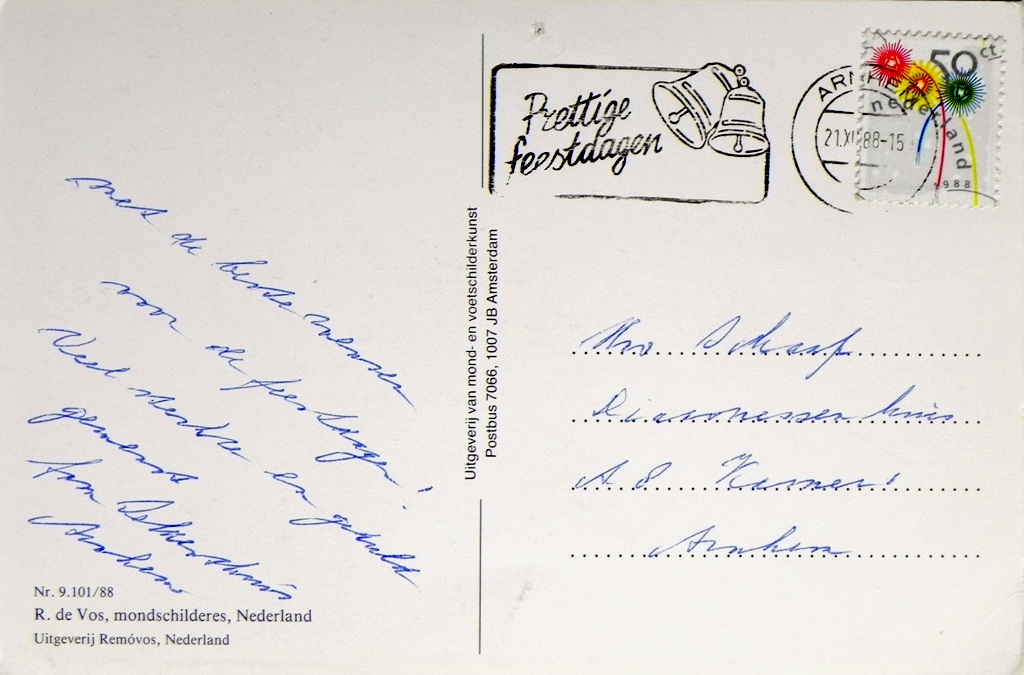 met de beste wensen
voor de feestdagen!
Veel sterkte en geduld
gewenst
Arnhem
Nr. 9.101/88
R. de Vos, mondschilderes, Nederland
Uitgeverij Remóvos, Nederland
Uitgeverij van mond- en voetschilderkunst
Postbus 7066, 1007 JB Amsterdam
Prettige
feestdagen
ARNHEM
21.XII.88-15
50 ct
nederland
1988
Mw Schaaf
Diaconessenhuis
A 8 Kamer 1
Arnhem